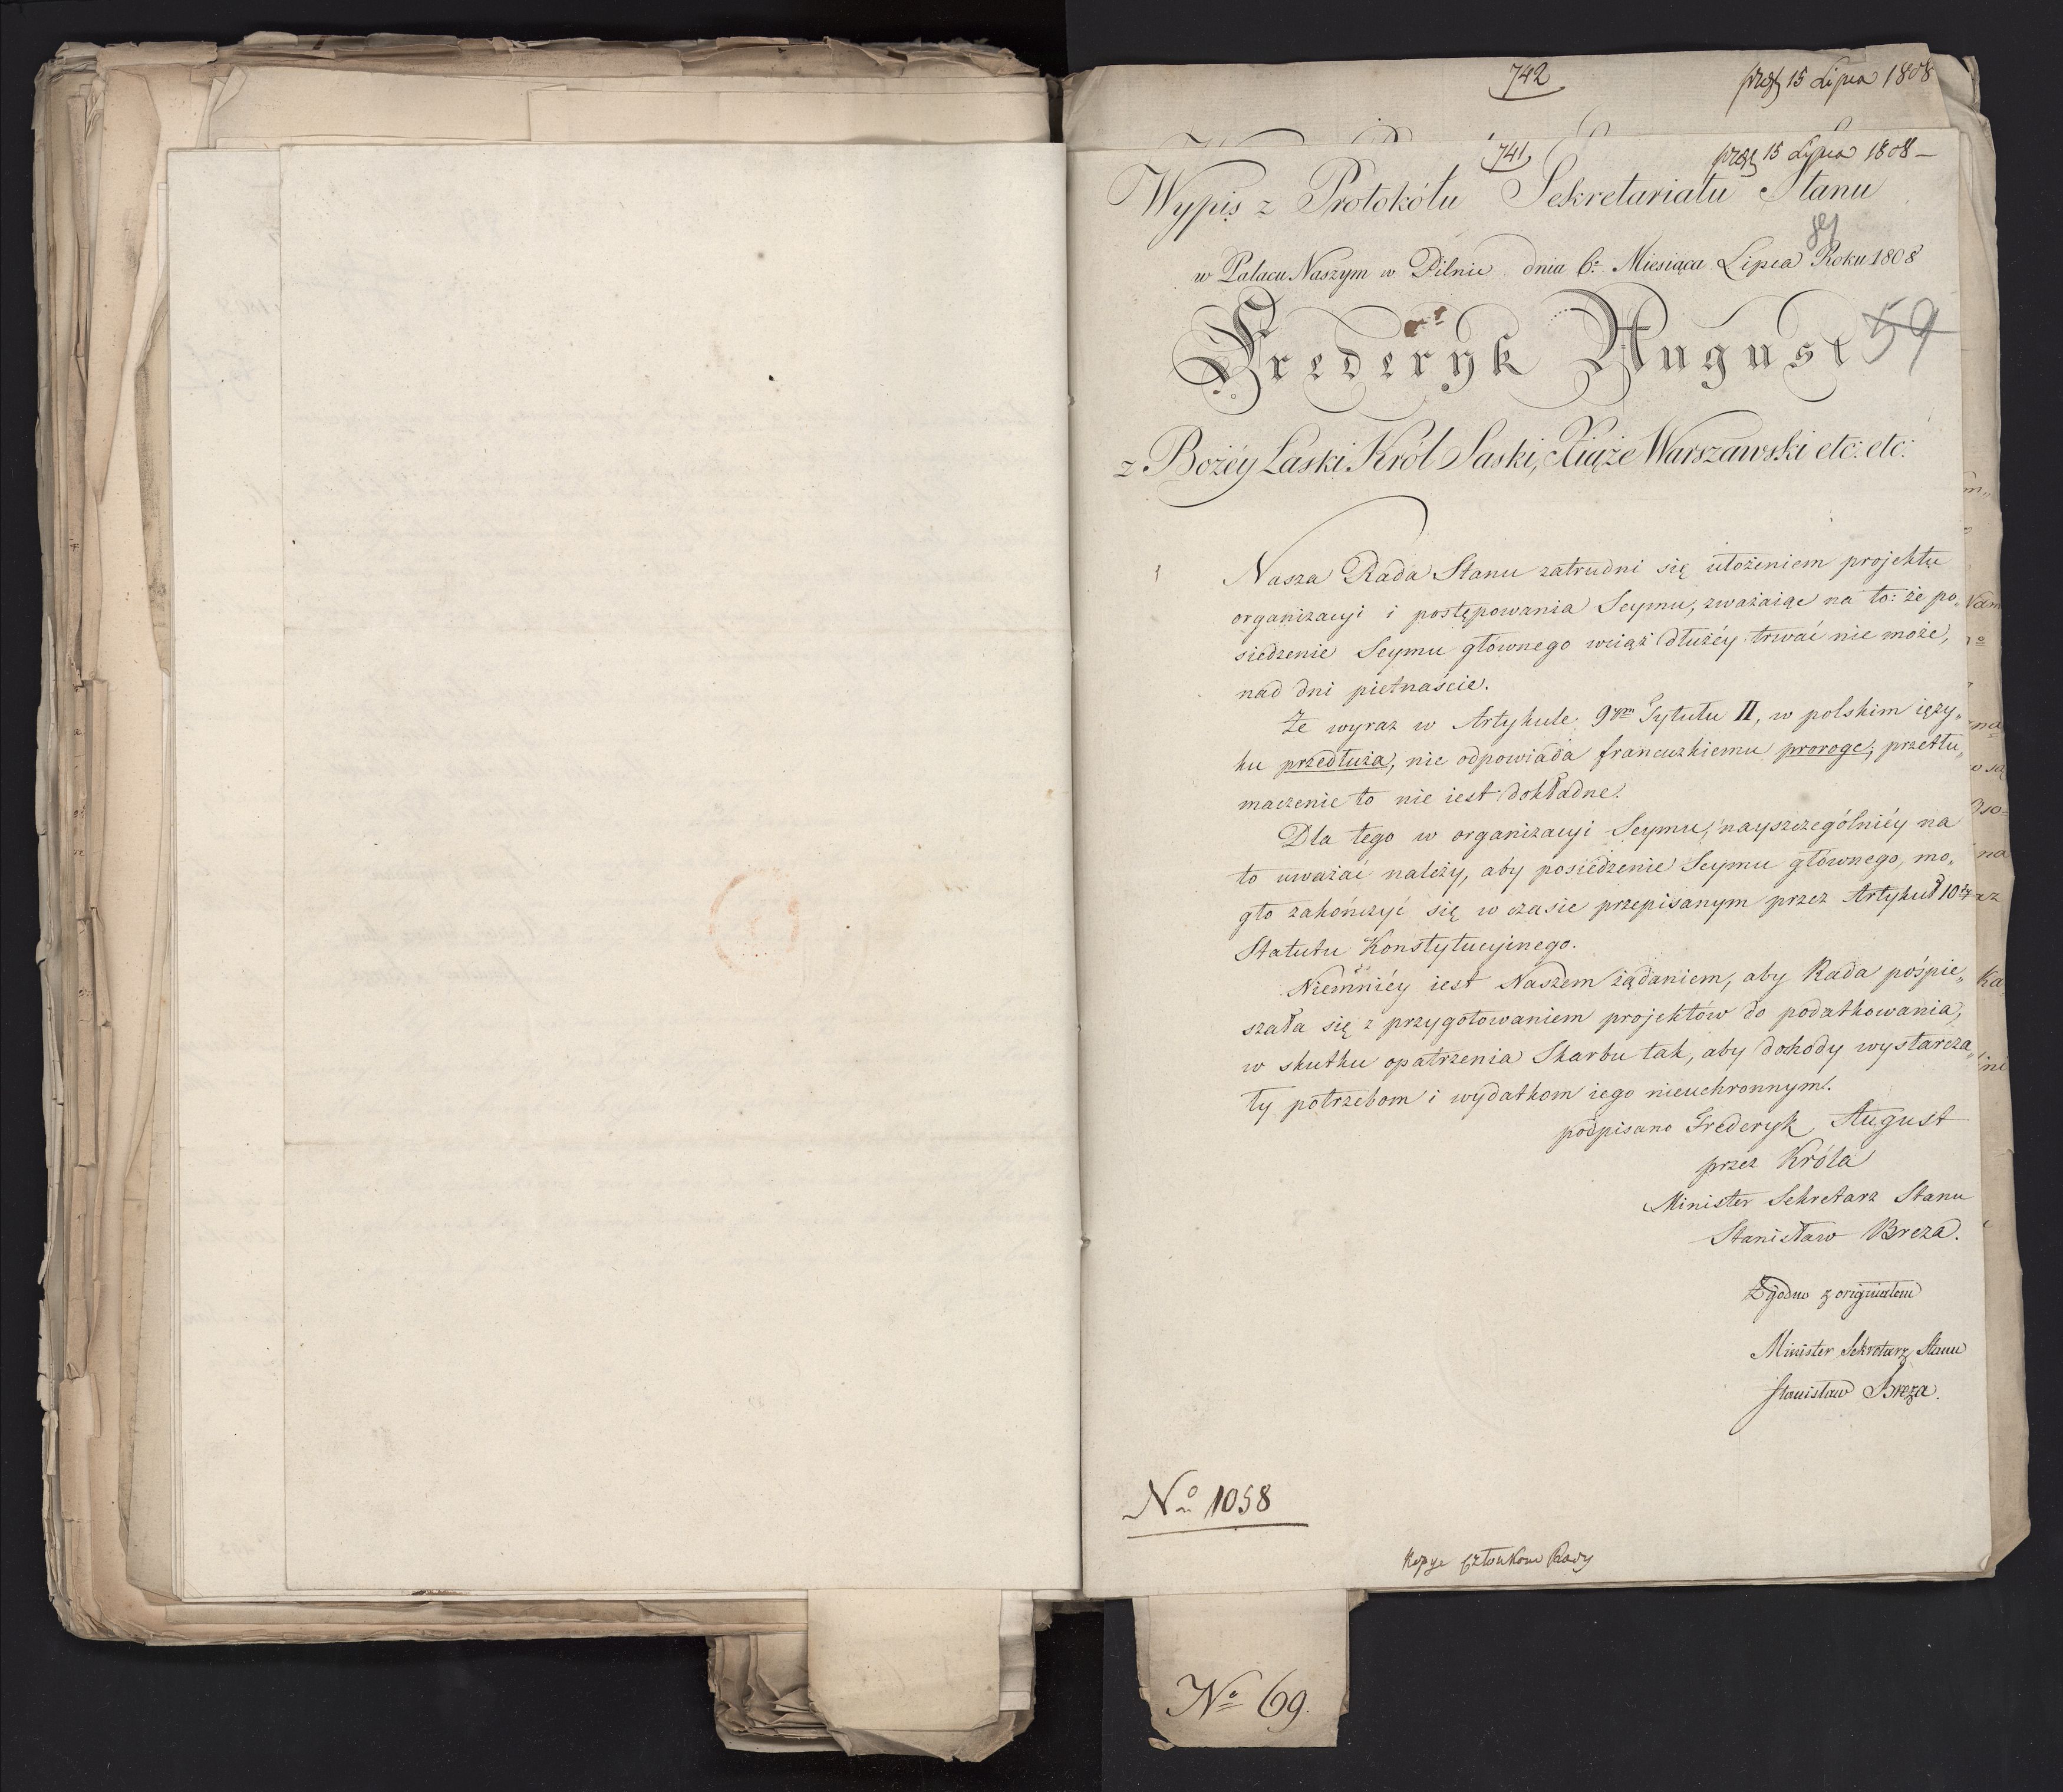 742
15 Lipca 1808
741
15 Lipca 1808 –
Wypis z Protokółu Sekretariatu Stanu
w Pałacu Naszym w Pilnic dnia 6º Miesiąca Lipca Roku 1808
59
Frederyk August
z Bożéy Łaski Król Saski, Xiąże Warszawski etc: etc:
Nasza Rada Stanu zatrudni się ułożeniem projektu
organizacyi i postępowania Seymu, zważaiąc na to: że po„
siedzenie Seymu głównego wciąż dłużéy trwać nie może,
nad dni piętnaście.
Że wyraz w Artykule 9ym Tytułu II, w polskim ięzy„
ku przedłuża, nie odpowiada francuzkiemu proroge; przetłu„
maczenie to nie iest dokładne.
Dla tego w organizacyi Seymu, nayszczególniéy na
to uważać należy, aby posiedzenie Seymu głównego, mo„
gło zakończyć się w czasie przepisanym przez Artykuł 10ty
Statutu Konstytucyinego.
Niemniéy iest Naszem żądaniem, aby Rada pośpie„
szała się z przygotowaniem projektów do podatkowania,
w skutku opatrzenia Skarbu tak, aby dochody wystarcza„
ły potrzebom i wydatkom iego nieuchronnym.
podpisano Frederyk August
przez Króla
Minister Sekretarz Stanu
Stanisław Breza.
Zgodno z originałem
Minister Sekretarz Stanu
Stanisław Breza.
Nº 1058
Kopye Członkom Rady
Nº 69.